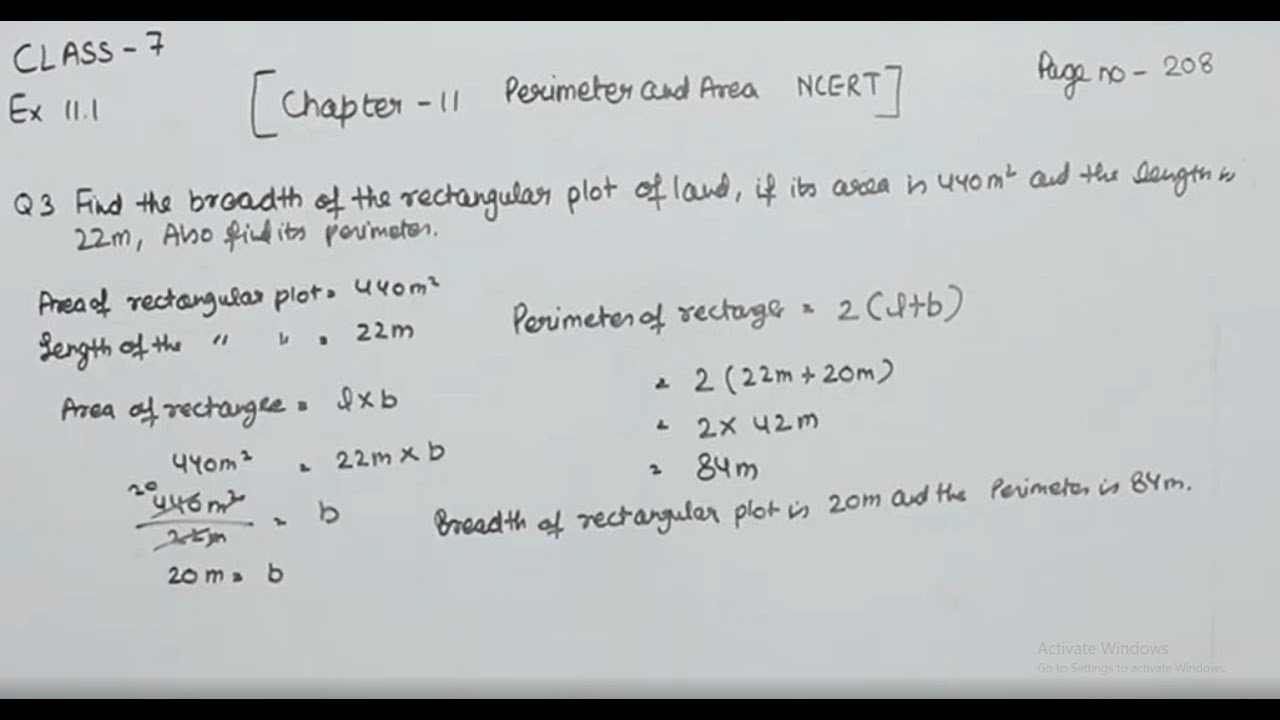 CLASS - 7
Ex 11.1
[Chapter - 11 Perimeter and Area NCERT]
Page no - 208
Q3 Find the breadth of the rectangular plot of land, if its area is 440m² and the length is
22m, Also find its perimeter.
Area of rectangular plot = 440m²
Length of the " " = 22m
Area of rectangle = l × b
440m² = 22m × b
20
440m² = b
22m
20m = b
Perimeter of rectangle = 2(l+b)
= 2(22m + 20m)
= 2 × 42m
= 84m
Breadth of rectangular plot is 20m and the Perimeter is 84m.
Activate Windows
Go to Settings to activate Windows.